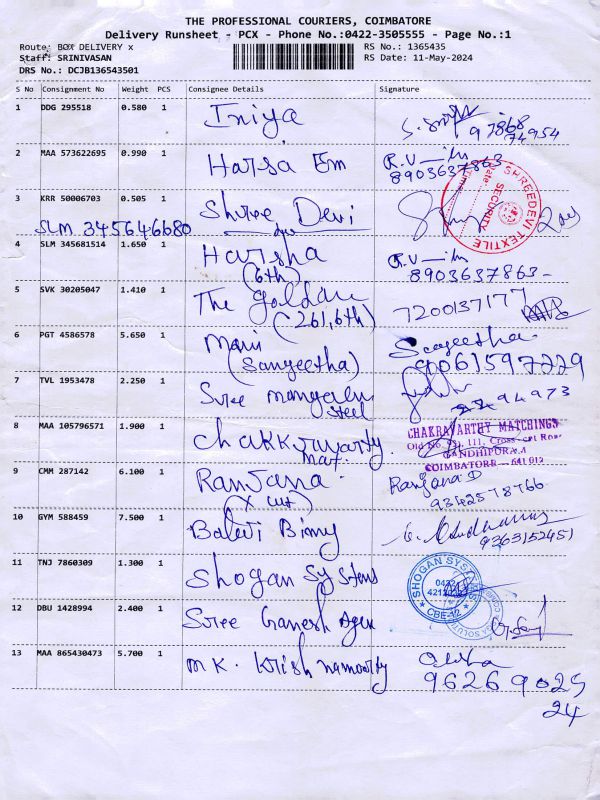 THE PROFESSIONAL COURIERS, COIMBATORE
Delivery Runsheet - PCX - Phone No.:0422-3505555 - Page No.:1
Route: BOX DELIVERY x
RS No.: 1365435
Staff: SRINIVASAN
RS Date: 11-May-2024
DRS No.: DCJB136543501
S No Consignment No Weight PCS Consignee Details Signature
1 DDG 295518 0.580 1 Iniya
97868
74954
2 MAA 573622695 0.990 1 Harsa Em R.V
8903637863
3 KRR 50006703 0.505 1 Shree Devi
SHREEDEVI TEXTILE
SECURITY
Date
Time
SLM 345646680
4 SLM 345681514 1.650 1 Harsha R.V
(6th) 8903637863
5 SVK 30205047 1.410 1 The Goldan 7200137177
(261, 6th)
6 PGT 4586578 5.650 1 Mani Sangeetha
(Sangeetha) 9061597229
7 TVL 1953478 2.250 1 Sree mangalam
steel
94973
8 MAA 105796571 1.900 1 Chakkravarty
mat.
CHAKRAVARTHY MATCHINGS
Old No. 111, Cross Cut Road
GANDHIPURAM
COIMBATORE - 641 012
9 CMM 287142 6.100 1 Ranjana Ranjana D
(X cut) 9342578766
10 GYM 588459 7.500 1 Balevi Binny
9363152451
11 TNJ 7860309 1.300 1 Shogan Systems
SHOGAN SYSTEMS
0422
CBE-12
12 DBU 1428994 2.400 1 Sree Ganesh Agen
13 MAA 865430473 5.700 1 M K. Krishnamoorty
96269025
24